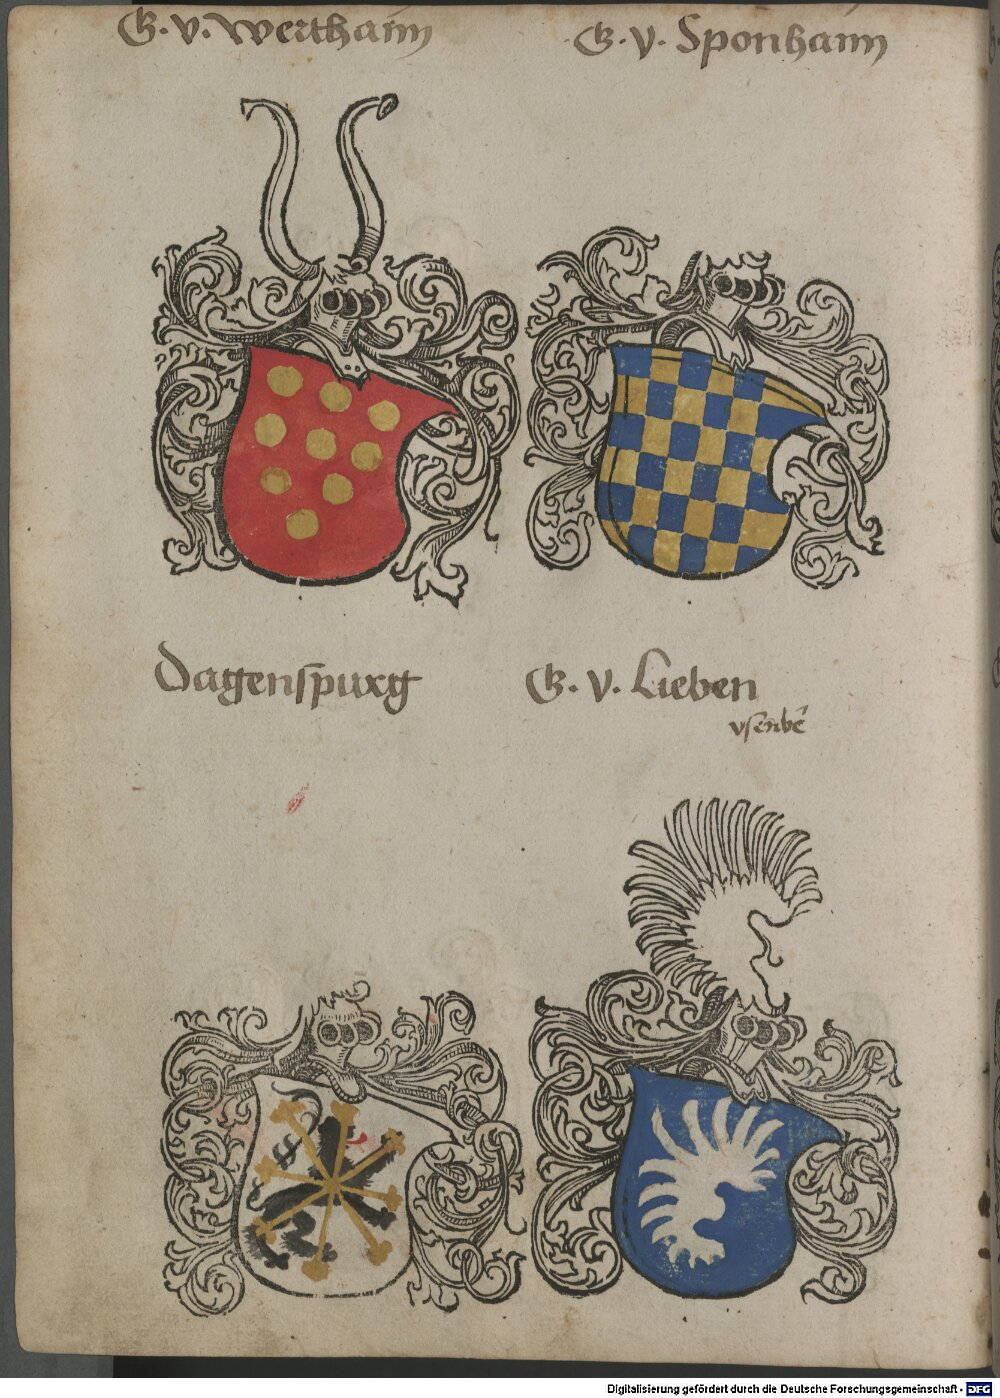 G. v. Werthaim
G. v. Sponhaim
Dagenspurg
G. v. Lieben
Digitalisierung gefördert durch die Deutsche Forschungsgemeinschaft - DFG